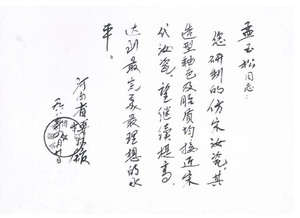 孟玉松同志：
您研制的仿宋汝瓷，其
造型釉色及胎质均接近宋
代汝瓷，望继续提高，
达到最完美最理想的水
平。
河南省博物馆